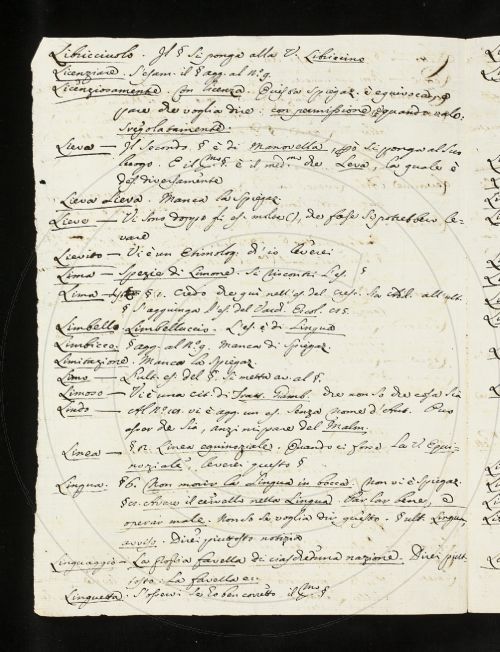 Libricciuolo. Il § si ponga alla V. Libriccino
Licenziare. S'esam. il § agg. al N.º 9.
Licenziosamente. Con licenza. Questa Spiegaz. è equivoca, e
pare che voglia dire: con permissione, quando vale:
Sregolatamente.
Lieva — Il Secondo § è di Manovella, si ponga al suo
luogo. E il § è il med.mo che Leva, la quale è
def. diversamente
Lieva Lieva. Manca la Spiegaz.
Lieve — Vi sono troppi es. che forse si potrebbero le-
vare
Lievito — Vi è un Etimolog. ch'io leverei
Lima — Spezie di Limone. Si riscontri l'es. §
Lima § 1. Credo che qui nell'es. del Cresc. all'ult.
§ s'aggiunga l'es. del
Limbello Limbelluccio. L'es. è di Lingua
Limbicco. § agg. al N.º 9. Manca di Spiegaz.
Limitazione. Manca la Spiegaz.
Limo — L'ult. es. del §. si metta av. al §.
Limoso — Vi è una cit. di Tratt. che non so che cosa sia
Lindo — Al N.º vi è agg. un es. senza nome d'Aut. Può
esser che sia, anzi mi pare del Malm.
Linea — § Linea equinoziale. Quando ci fosse la V. Equi-
noziale, leverei questo §
Lingua. § 6. Non morir la lingua in bocca. Non vi è Spiegaz.
§ Avere il cervello nella lingua. Parlar bene, e
operar male. Non so se voglia dir questo. § ult. Lingua,
avviso. Direi piuttosto notizia
Linguaggio — La stessa favella di ciascheduna nazione. Direi piut-
tosto: La favella ec.
Linguetta. S'osservi se è ben corretto il §.